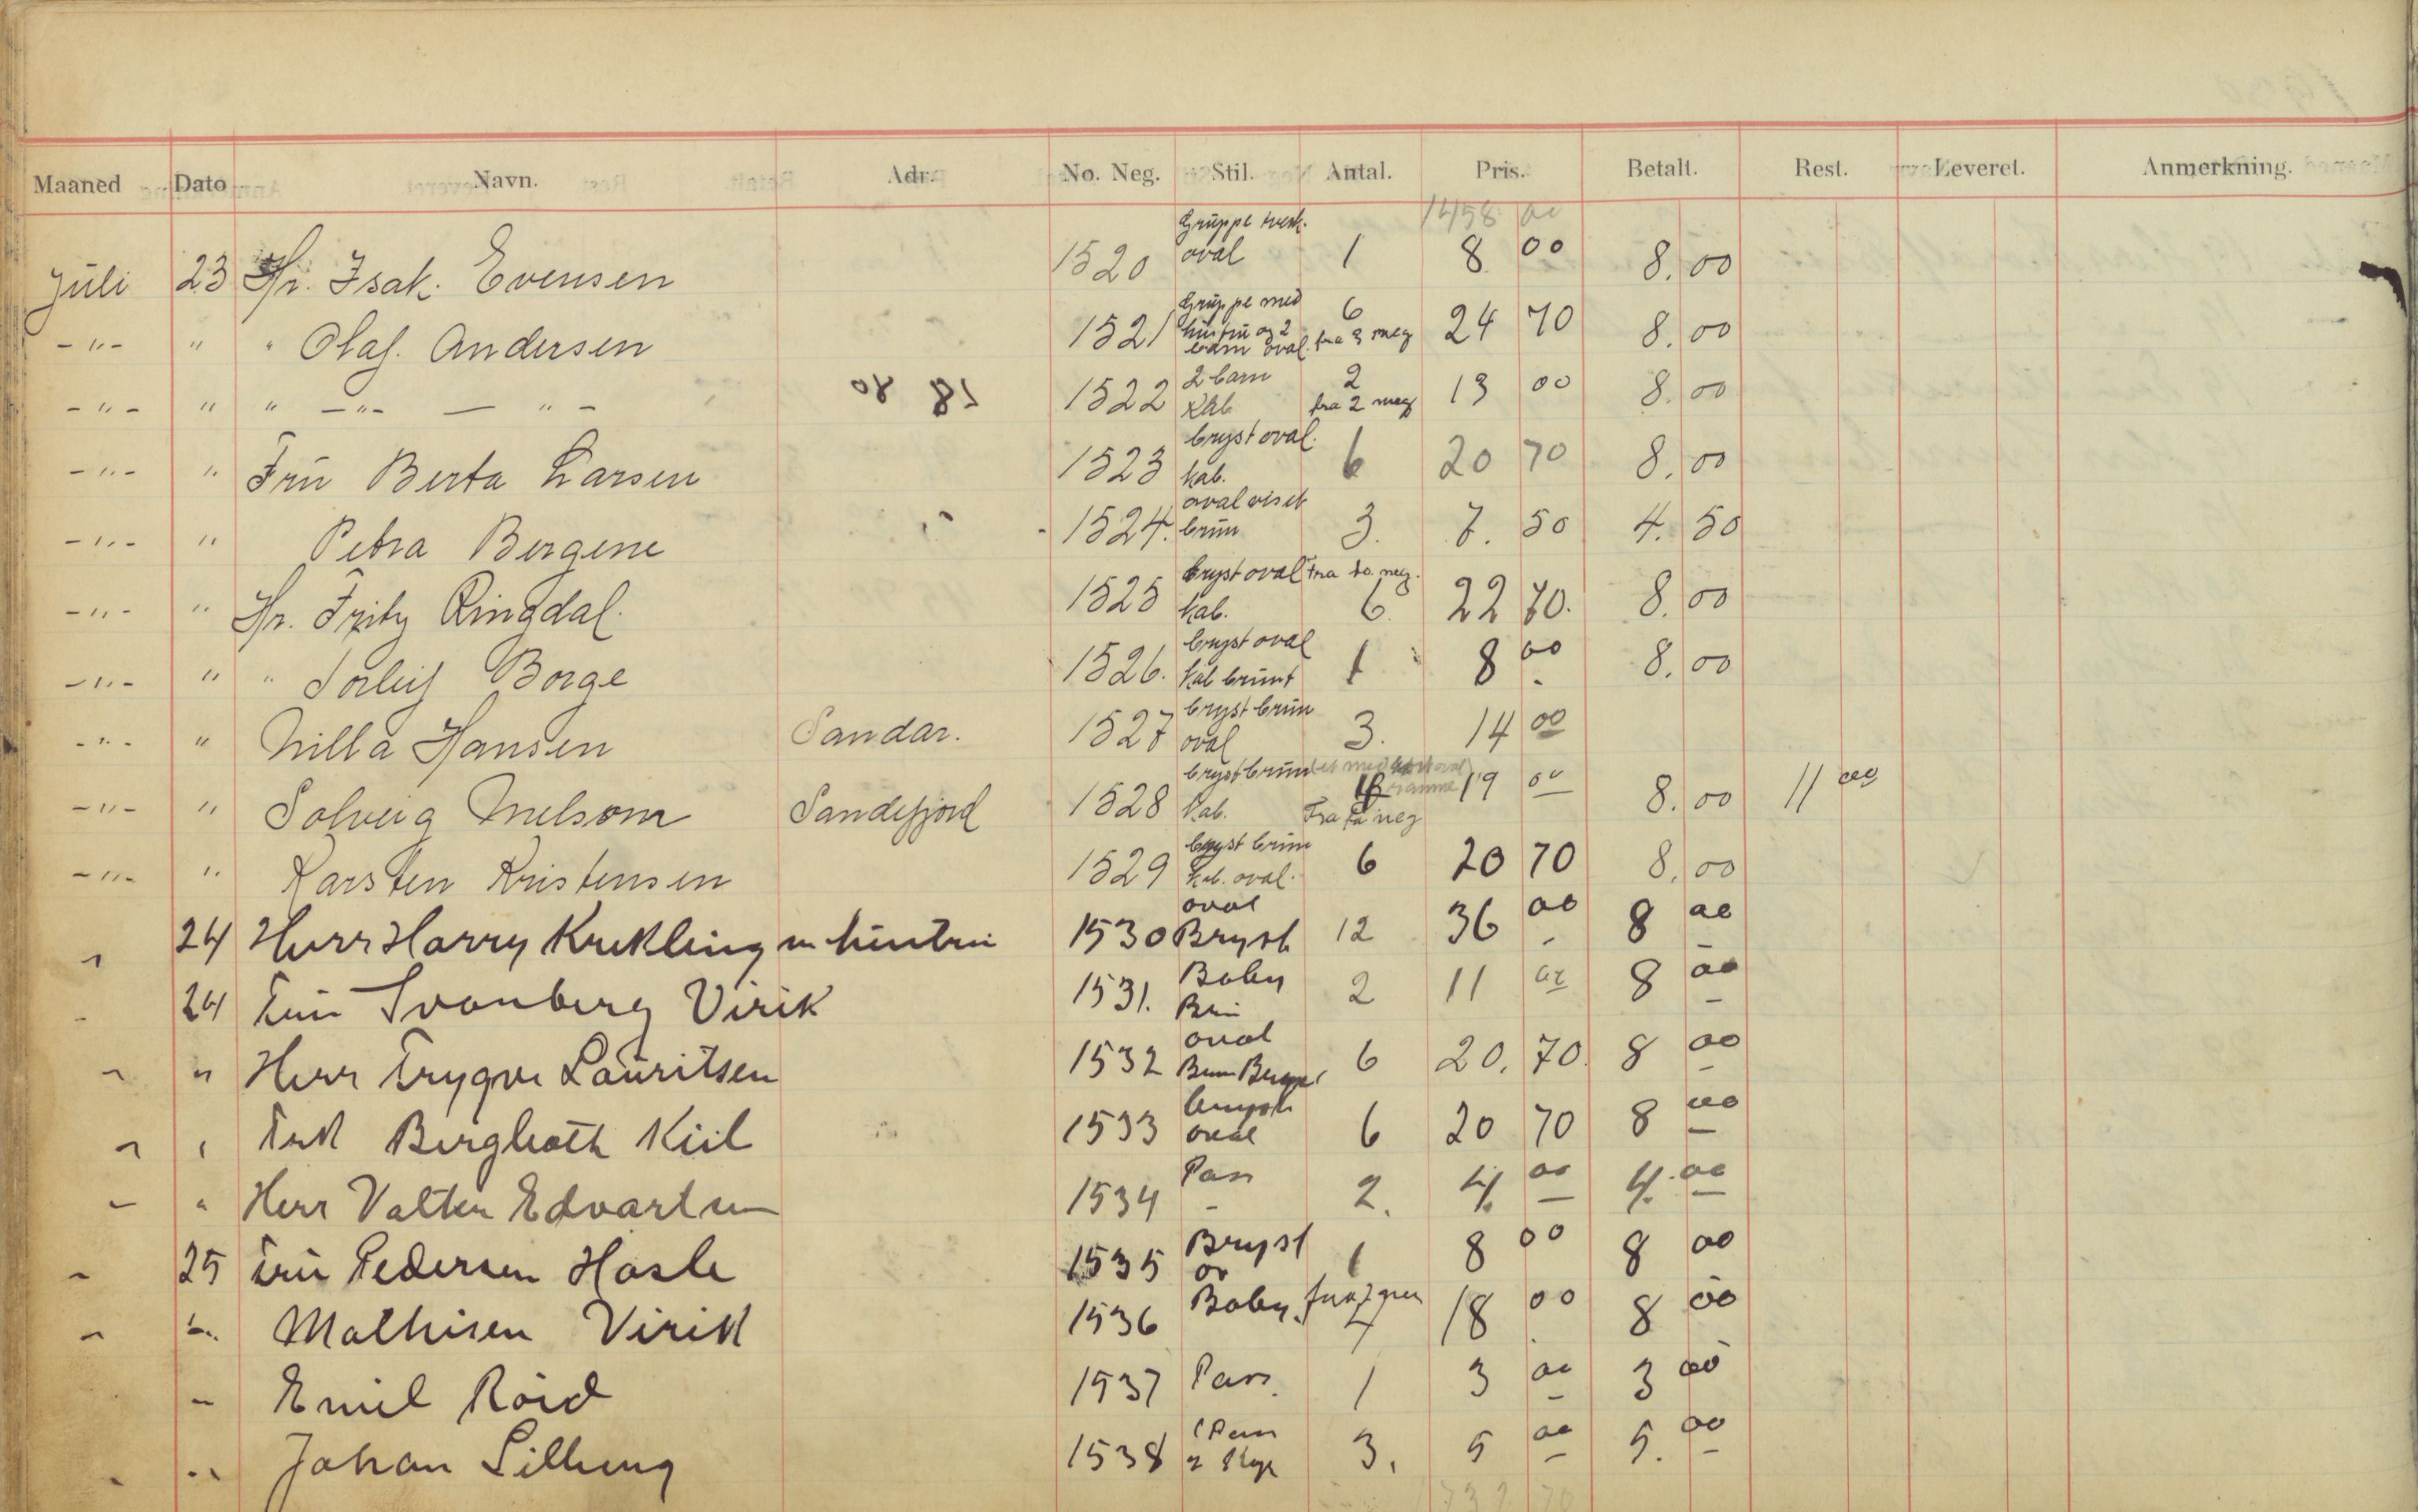 Maaned Dato Navn. Adr. No. Neg. Stil. Antal. Pris. Betalt. Rest. Leveret. Anmerkning.
1458 00
Gruppe
Juli 23 Hr. Isak. Evensen 1520 oval 1 8 00 8. 00
Gruppe med 6
-"- " " Olaf. Andersen 1521 hustru og 2 24 70 8. 00
barn oval. fra 3 neg
2 barn 2
-"- " " -"- — "- 1522 kab fra 2 neg 13 00 8. 00
bryst oval.
-"- " Fru Berta Larsen 1523 kab. 6 20 70 8. 00
oval visit
-"- " Petra Bergene 1524. brun 3. 7. 50 4. 50
bryst oval fra to neg.
-"- " Hr. Fritz Ringdal. 1525 kab. 6. 22 70. 8. 00
bryst oval
-"- " " Sorleif Borge 1526. kab brunt 1 8 00 8. 00
bryst brun
-"- " Milla Hansen Sandar. 1527 oval 3. 14 00
bryst brun
-"- " Solveig Melsom Sandefjord 1528 kab. Fra to neg 19 00 8. 00 11 00
bryst brun
-"- " Karsten Kristensen 1529 kab. oval. 6 20 70 8. 00
oval
24 Herr Harry Krekling m hustru 1530 Bryst 12 36 00 8 00
Baby
24 Fru Svanberg Virik 1531. Brun 2 11 00 8 00
oval
" Herr Trygve Lauritsen 1532 Brun 6 20. 70 8 00
bryst
Frk Berglioth Kiil 1533 oval 6 20 70 8 00
Pass
" Herr Valter Edvartsen 1534 - 2. 4. 00 4. 00
Bryst
25 Fru Pedersen Hasle 1535 ov 1 8 00 8 00
Mathisen Virik 1536 Baby. 18 00 8 00
Emil Roid 1537 Pass. 1 3 00 3 00
1 Pass
Johan Lillung 1538 2 3. 5 00 5. 00